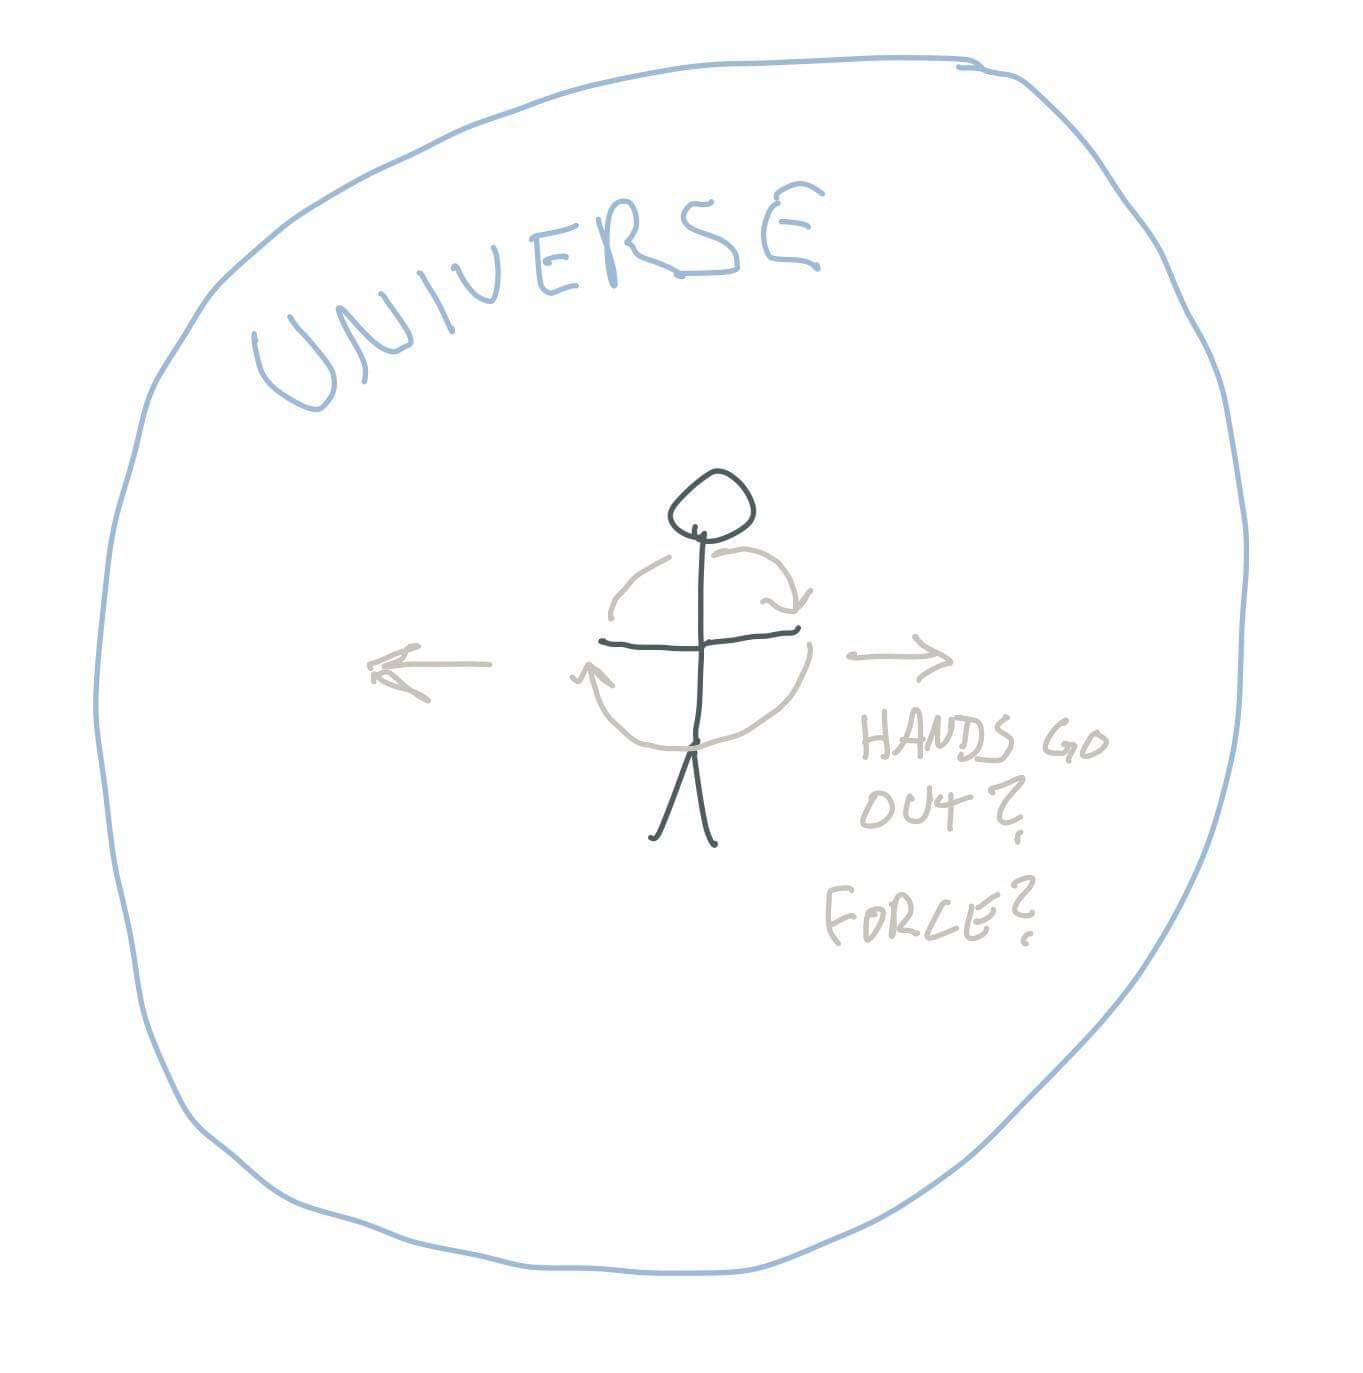 UNIVERSE
HANDS GO
OUT?
FORCE?